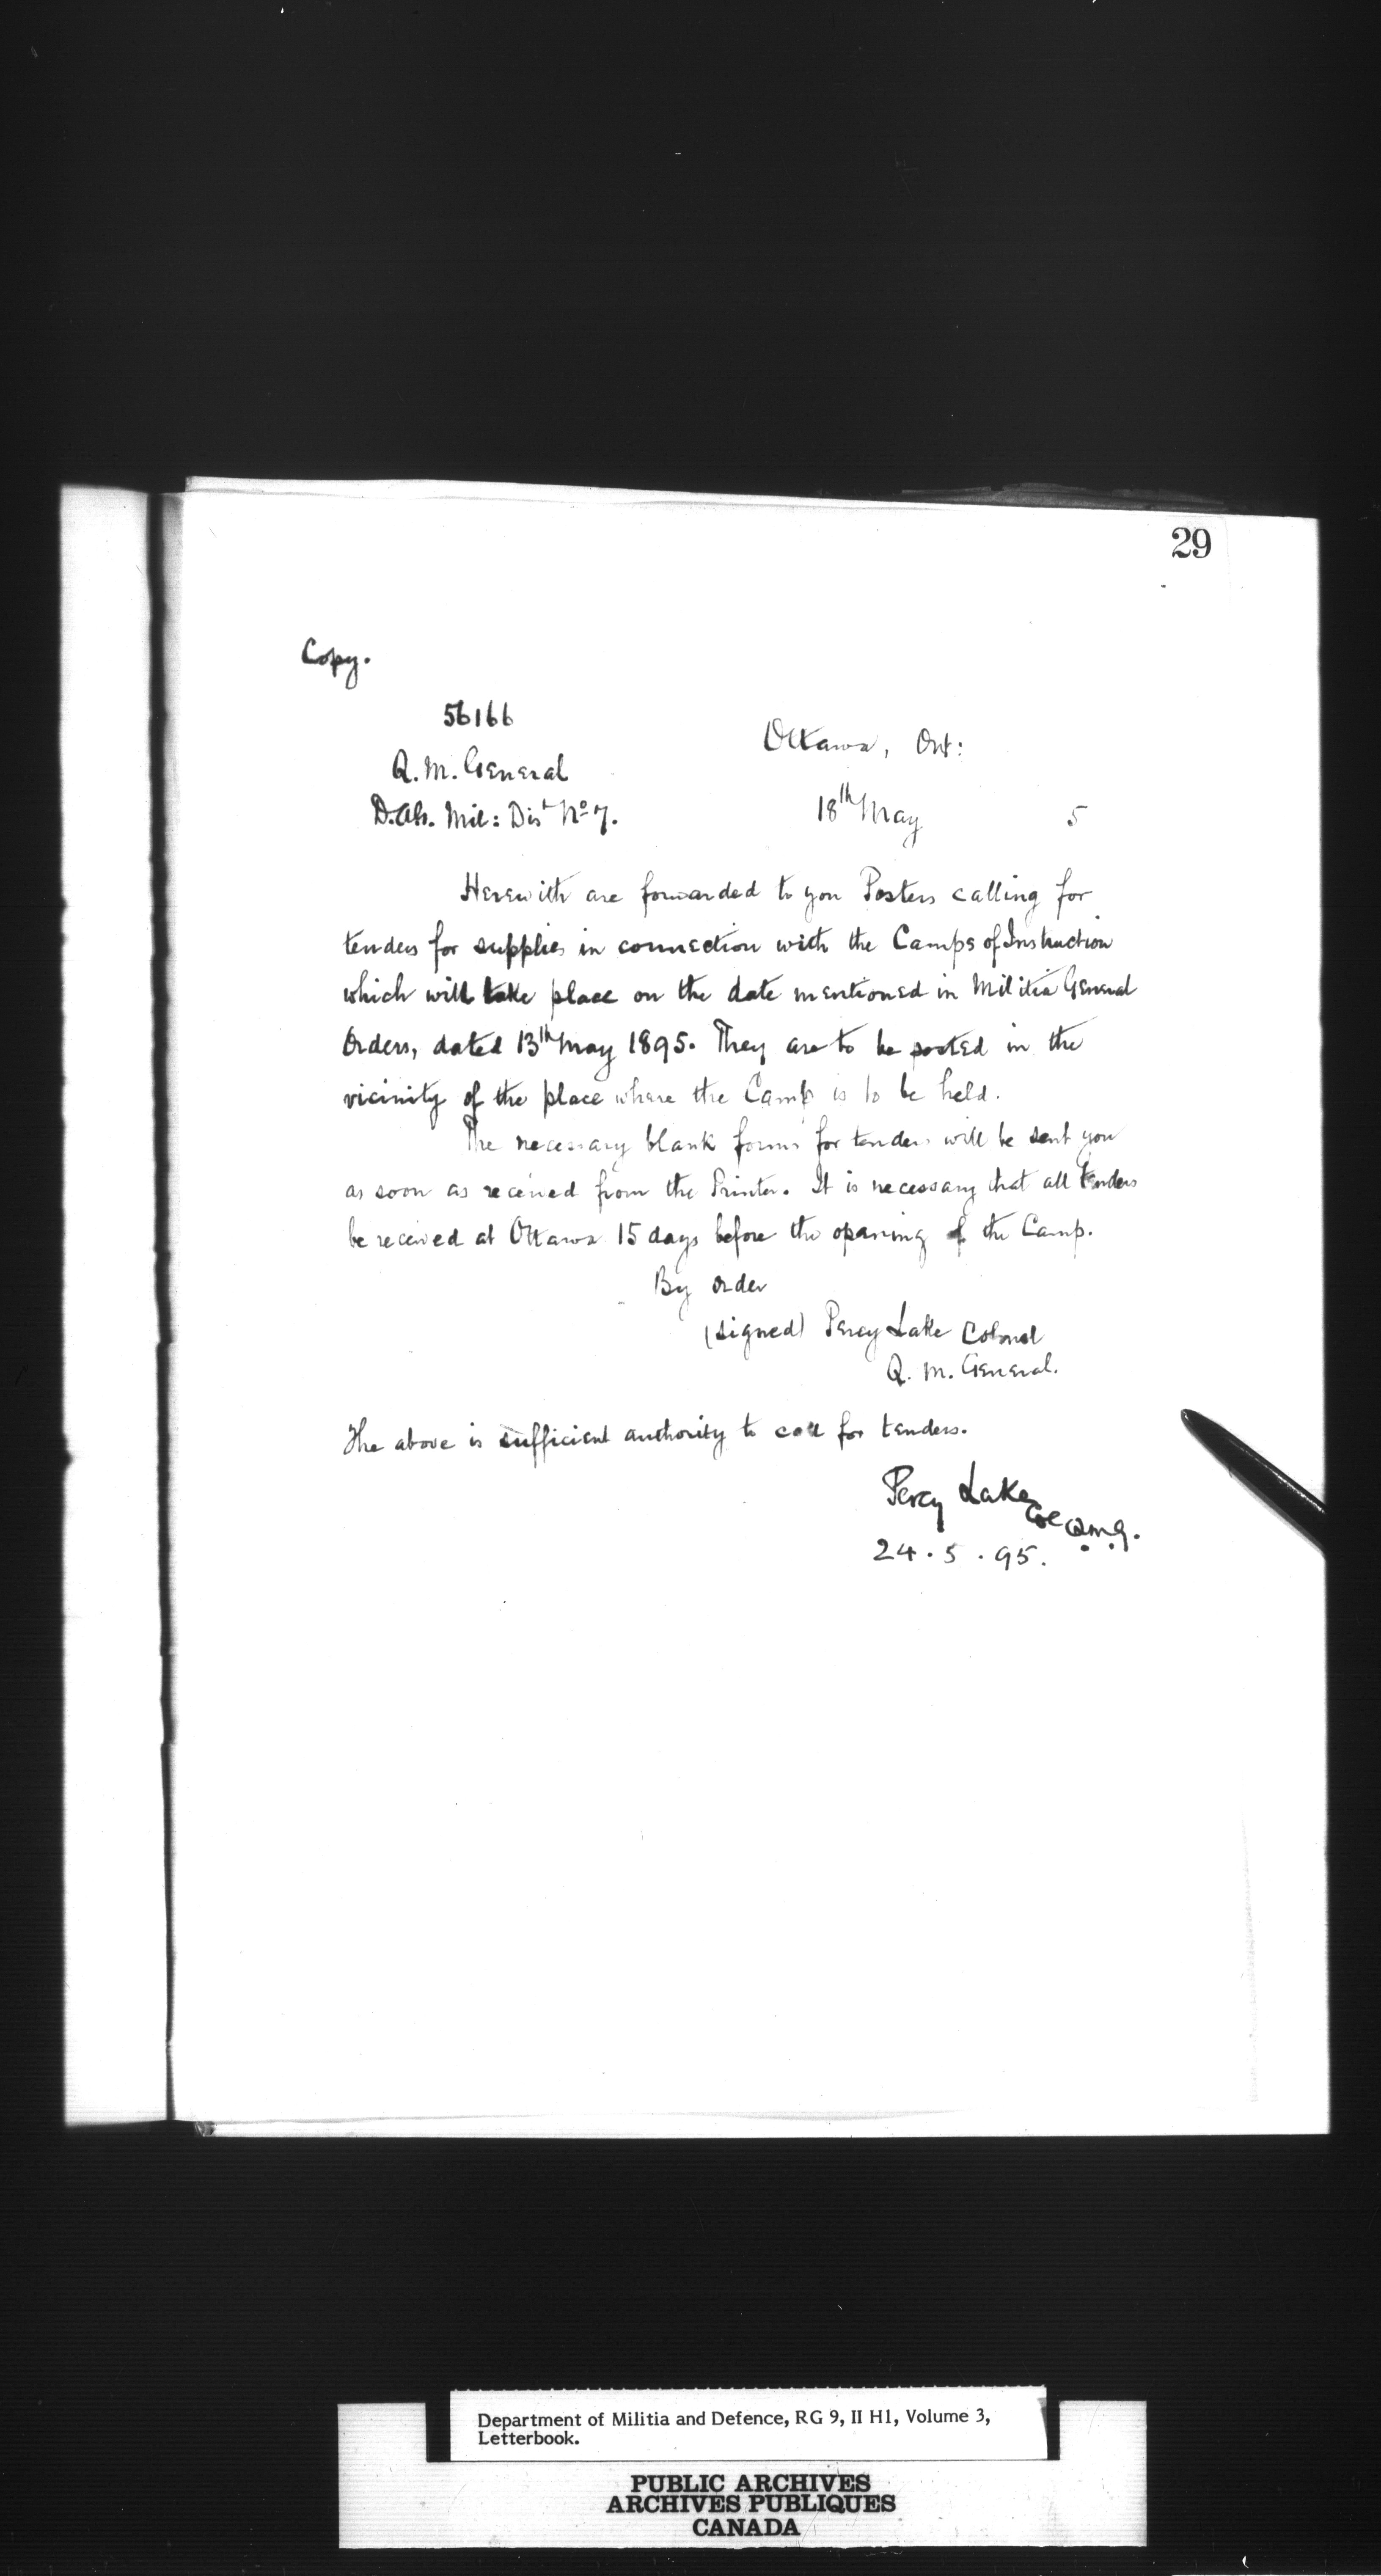 29
Copy.
56166
Q. M. General
Ottawa, Ont:
D.A.G. Mil: Dist No 7.
18th May 5
Herewith are forwarded to you Posters calling for
tenders for supplies in connection with the Camps of Instruction
which will take place on the date mentioned in Militia General
Orders, dated 13th May 1895. They are to be posted in the
vicinity of the place where the Camp is to be held.
The necessary blank forms for tenders will be sent you
as soon as received from the Printer. It is necessary that all tenders
be received at Ottawa 15 days before the opening of the Camp.
By order
(signed) Percy Lake Colonel
Q. M. General.
The above is sufficient authority to call for tenders.
Percy Lake
Col Q.M.G.
24.5.95.
Department of Militia and Defence, RG 9, II H1, Volume 3,
Letterbook.
PUBLIC ARCHIVES
ARCHIVES PUBLIQUES
CANADA